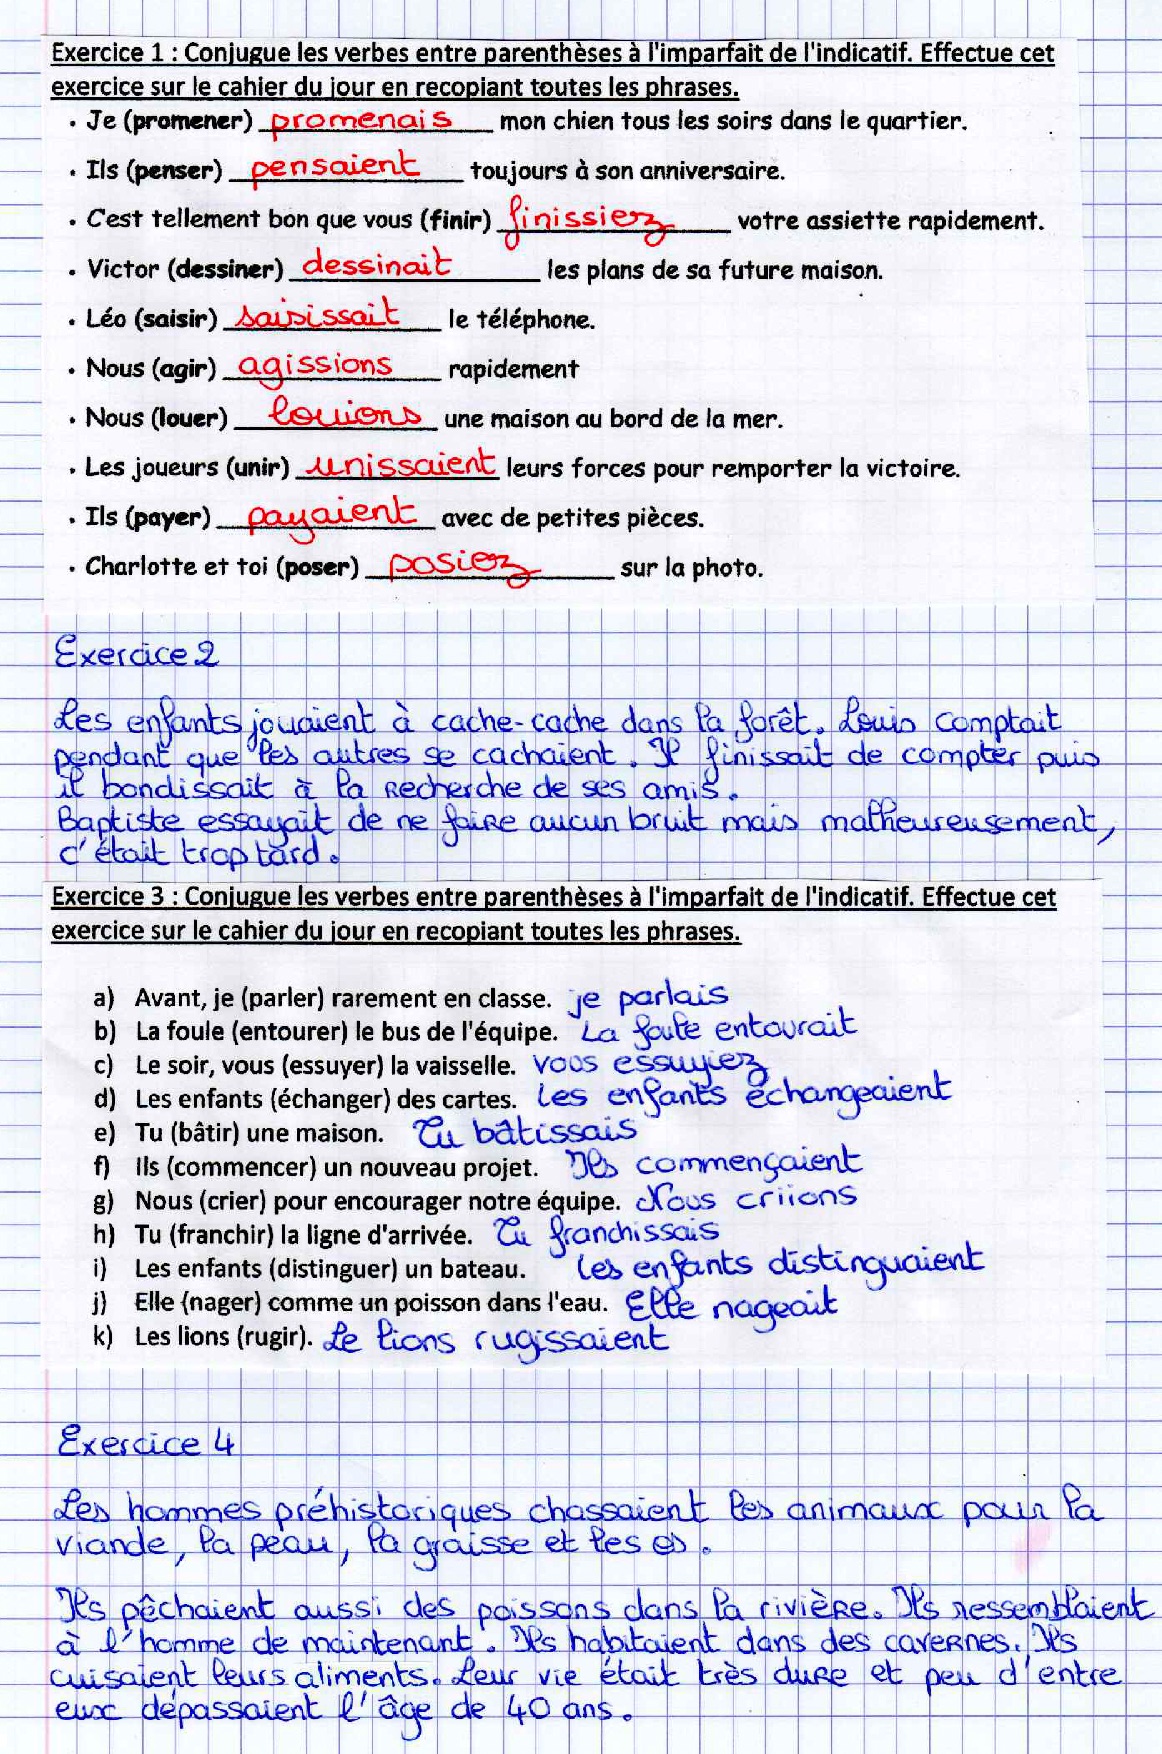 Exercice 1 : Conjugue les verbes entre parenthèses à l'imparfait de l'indicatif. Effectue cet
exercice sur le cahier du jour en recopiant toutes les phrases.
• Je (promener) promenais mon chien tous les soirs dans le quartier.
• Ils (penser) pensaient toujours à son anniversaire.
• C'est tellement bon que vous (finir) finissiez votre assiette rapidement.
• Victor (dessiner) dessinait les plans de sa future maison.
• Léo (saisir) saisissait le téléphone.
• Nous (agir) agissions rapidement
• Nous (louer) louions une maison au bord de la mer.
• Les joueurs (unir) unissaient leurs forces pour remporter la victoire.
• Ils (payer) payaient avec de petites pièces.
• Charlotte et toi (poser) posiez sur la photo.
Exercice 2
Les enfants jouaient à cache-cache dans la forêt. Louis comptait
pendant que les autres se cachaient. Il finissait de compter puis
il bondissait à la recherche de ses amis.
Baptiste essayait de ne faire aucun bruit mais malheureusement,
c'était trop tard.
Exercice 3 : Conjugue les verbes entre parenthèses à l'imparfait de l'indicatif. Effectue cet
exercice sur le cahier du jour en recopiant toutes les phrases.
a) Avant, je (parler) rarement en classe. je parlais
b) La foule (entourer) le bus de l'équipe. La foule entourait
c) Le soir, vous (essuyer) la vaisselle. vous essuyiez
d) Les enfants (échanger) des cartes. Les enfants échangeaient
e) Tu (bâtir) une maison. Tu bâtissais
f) Ils (commencer) un nouveau projet. Ils commençaient
g) Nous (crier) pour encourager notre équipe. Nous criions
h) Tu (franchir) la ligne d'arrivée. Tu franchissais
i) Les enfants (distinguer) un bateau. Les enfants distinguaient
j) Elle (nager) comme un poisson dans l'eau. Elle nageait
k) Les lions (rugir). Le lions rugissaient
Exercice 4
Les hommes préhistoriques chassaient les animaux pour la
viande, la peau, la graisse et les os.
Ils pêchaient aussi des poissons dans la rivière. Ils ressemblaient
à l'homme de maintenant. Ils habitaient dans des cavernes. Ils
cuisaient leurs aliments. Leur vie était très dure et peu d'entre
eux dépassaient l'âge de 40 ans.